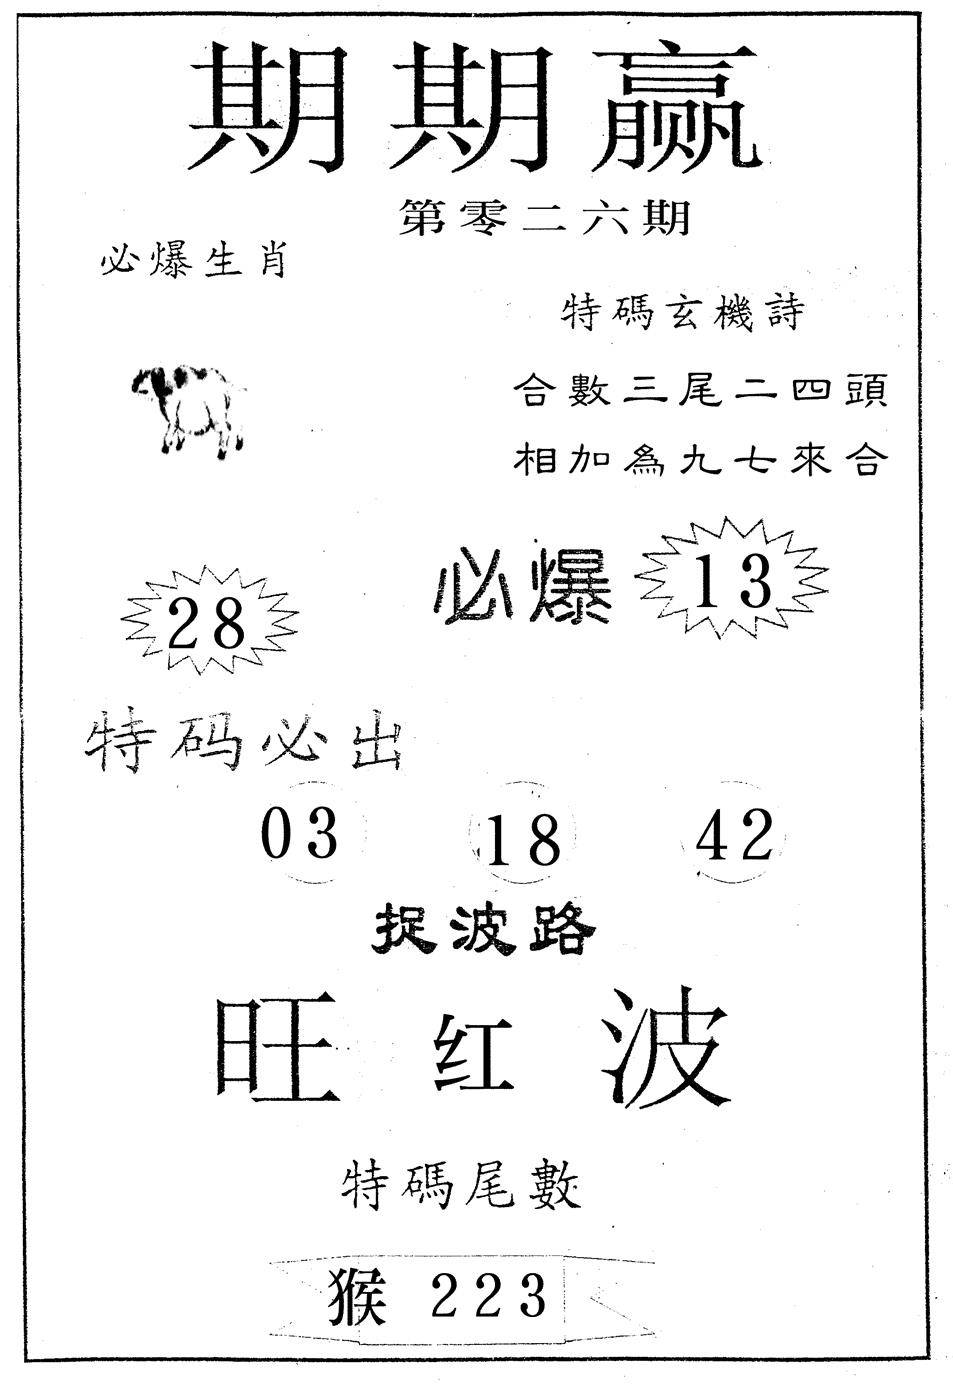 期期赢
第零二六期
必爆生肖
特碼玄機詩
合數三尾二四頭
相加為九七來合
必爆 13
28
特码必出
03 18 42
捉波路
旺红波
特碼尾數
猴 223